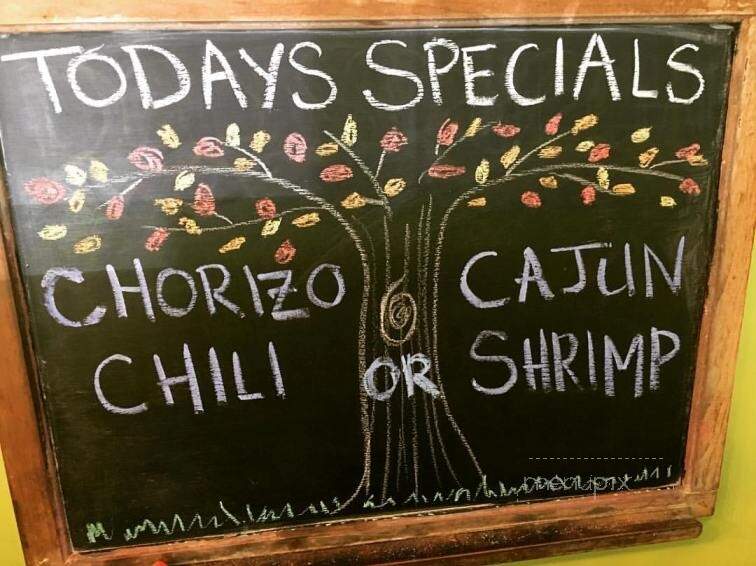 TODAYS SPECIALS
CHORIZO
CHILI
OR
CAJUN
SHRIMP
menupix